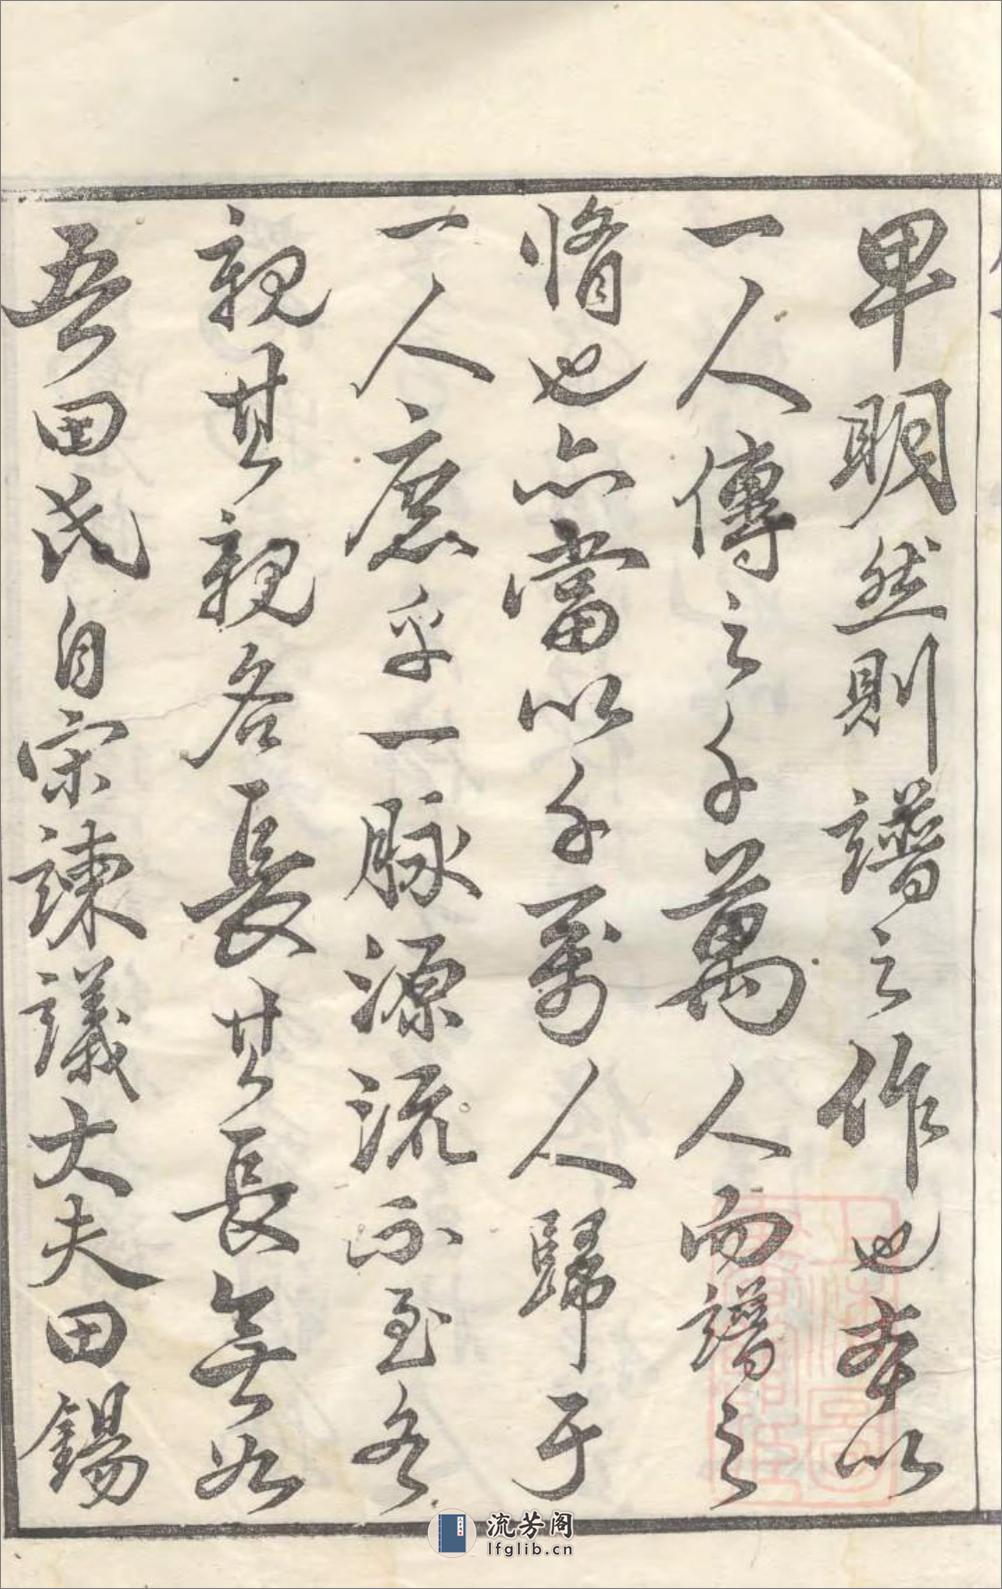 卑明然則譜之作也本以
一人傳之千萬人而譜之
脩也亦當以千萬人歸于
一人庶乎一脉源流不至各
親其親各長其長無如
吾田氏自宋諫議大夫田錫
流芳阁
lfglib.cn